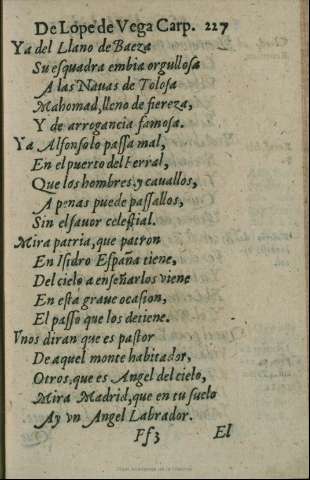 De Lope de Vega Carp. 227
Ya del Llano de Baeza
Su esquadra embia orgullosa
A las Nauas de Tolosa
Mahomad, lleno de fiereza,
Y de arrogancia famosa.
Ya Alfonso lo passa mal,
En el puerto del Ferral,
Que los hombres, y cauallos,
A penas puede passallos,
Sin el fauor celestial.
Mira patria, que patron
En Isidro España tiene,
Del cielo a enseñarlos viene
En esta graue ocasion,
El passo que los detiene.
Vnos diran que es pastor
De aquel monte habitador,
Otros, que es Angel del cielo,
Mira Madrid, que en tu suelo
Ay vn Angel Labrador.
Ff3 El